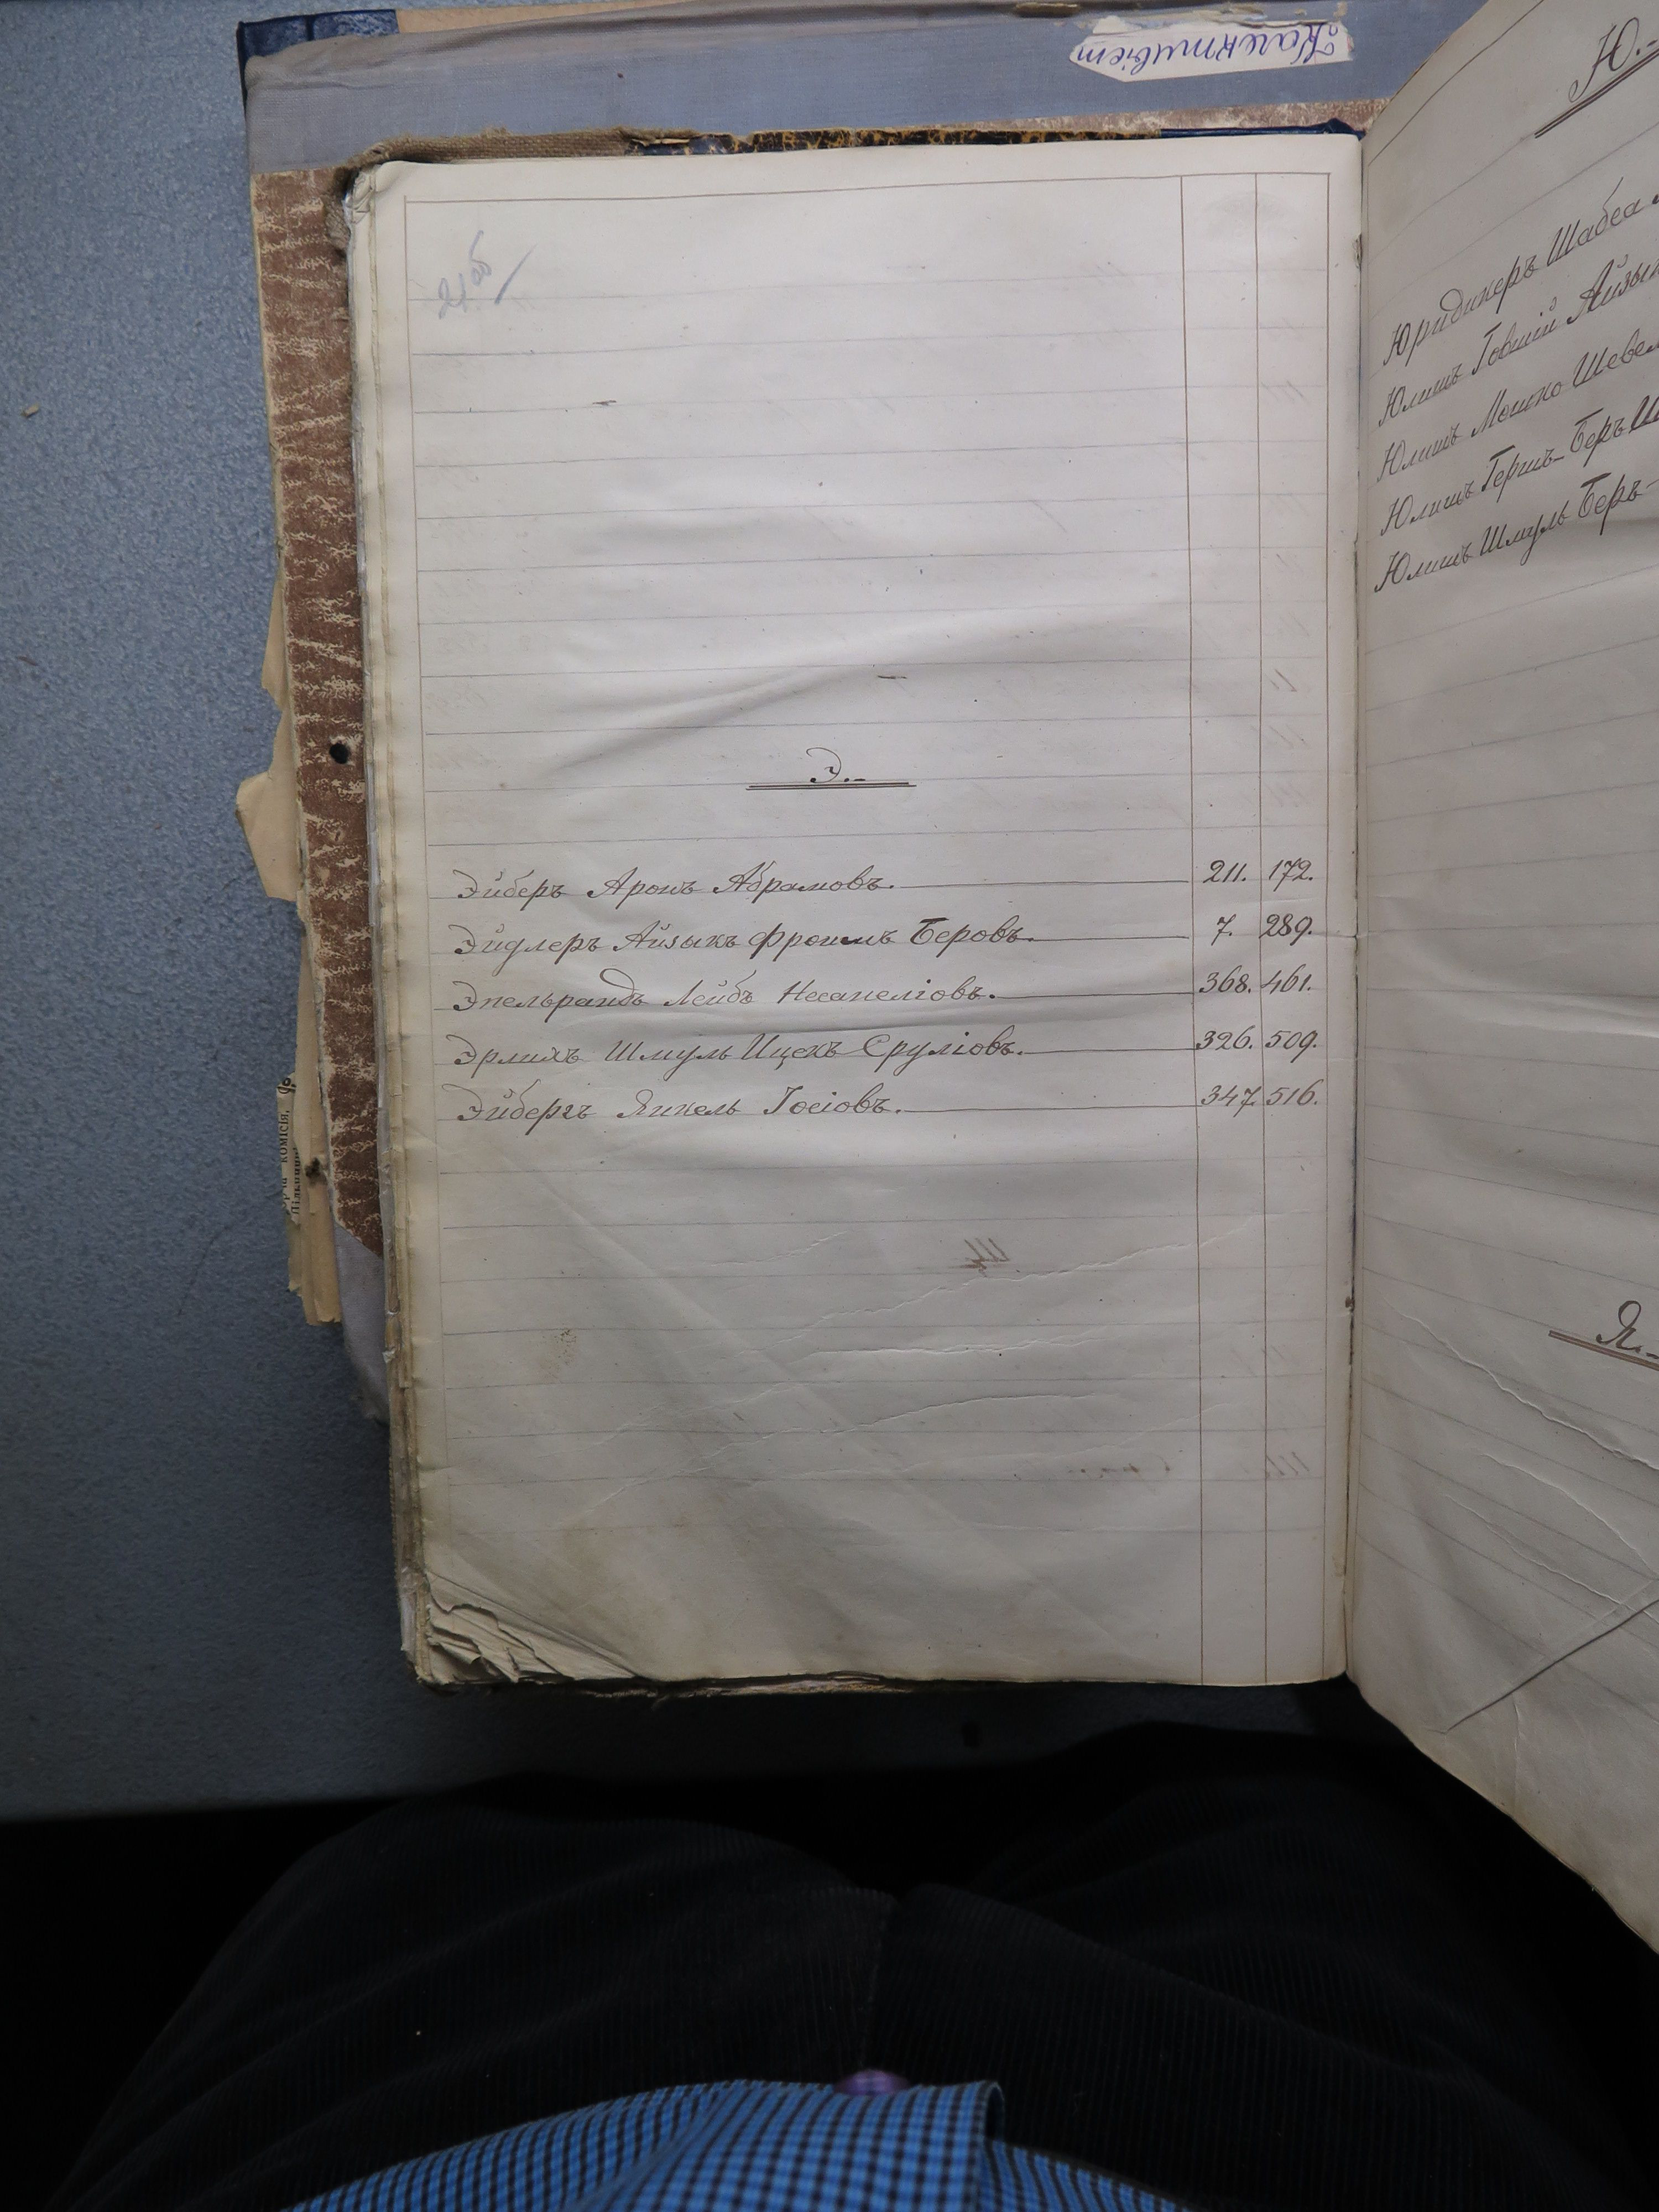 21об
Э.-
Эйберъ Аронъ Абрамовъ. 211. 172.
Эйдлеръ Айзыкъ Фроимъ Беровъ. 7. 289.
Эпельрандъ Лейбъ Несанеліовъ. 368. 461.
Эрлихъ Шмуль Ицекъ Сруліовъ. 326. 509.
Эйбергъ Янкель Іосіовъ. 347. 516.
Ю.-
Юридикеръ Шабса
Юлишъ Говшій Айзык
Юлишъ Мошко Шевел
Юлишъ Гершъ-Беръ
Юлишъ Шмуль Беръ-
Я.-
комісія,